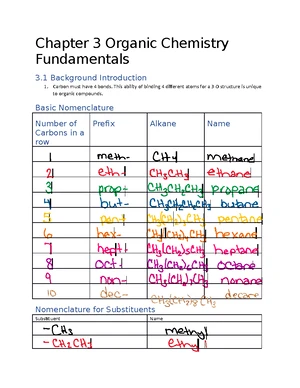 Chapter 3 Organic Chemistry
Fundamentals
3.1 Background Introduction
1. Carbon must have 4 bonds. This ability of binding 4 different atoms for a 3-D structure is unique
to organic compounds.
Basic Nomenclature
Number of Carbons in a row Prefix Alkane Name
1 meth- CH4 methane
2 eth- CH3CH3 ethane
3 prop- CH3CH2CH3 propane
4 but- CH3CH2CH2CH3 butane
5 pent- CH3(CH2)3CH3 pentane
6 hex- CH3(CH2)4CH3 hexane
7 hept- CH3(CH2)5CH3 heptane
8 Oct- CH3(CH2)6CH3 Octane
9 non- CH3(CH2)7CH3 nonane
10 dec- CH3(CH2)8CH3 decane
Nomenclature for Substituents
Substituent Name
-CH3 methyl
-CH2CH3 ethyl